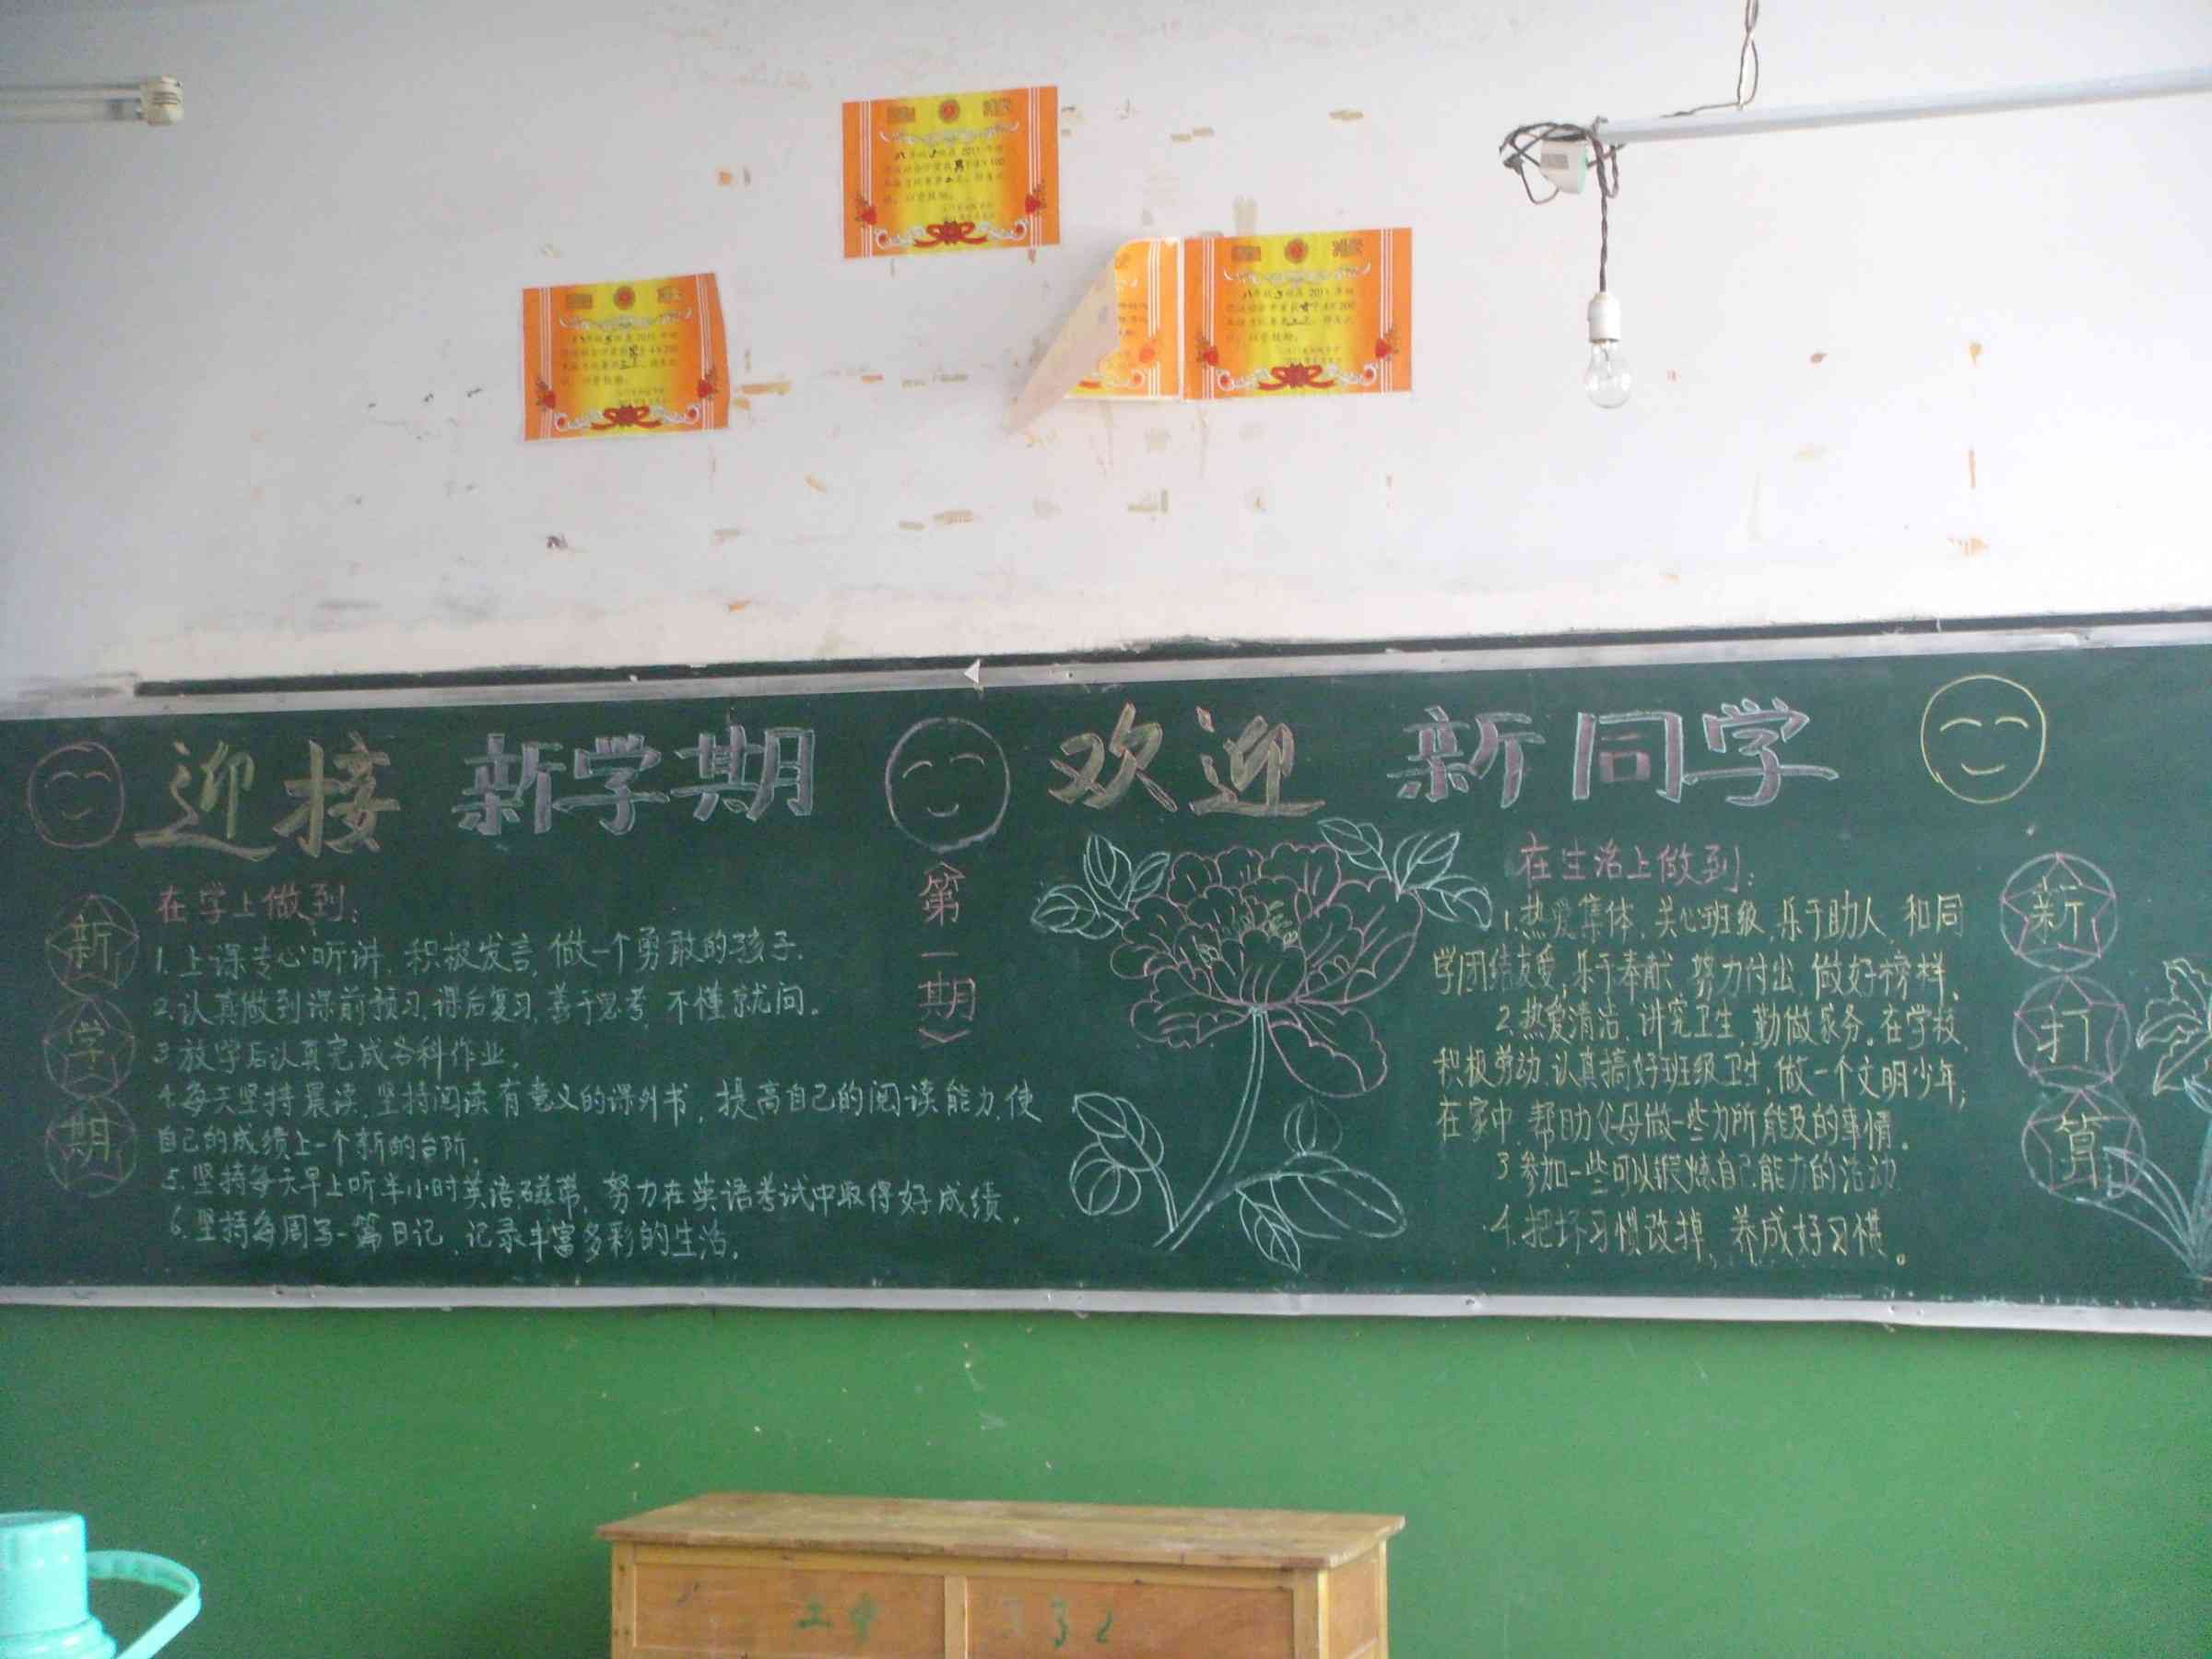 迎接 新学期
欢迎 新同学
新学期
在学上做到:
1.上课专心听讲,积极发言,做一个勇敢的孩子.
2.认真做到课前预习,课后复习,善于思考,不懂就问。
3.放学后认真完成各科作业。
4.每天坚持晨读,坚持阅读有意义的课外书,提高自己的阅读能力,使
自己的成绩上一个新的台阶.
5.坚持每天早上听半小时英语磁带,努力在英语考试中取得好成绩.
6.坚持每周写一篇日记,记录丰富多彩的生活.
《第一期》
在生活上做到:
1.热爱集体,关心班级,乐于助人,和同
学团结友爱,乐于奉献,努力付出,做好榜样、
2.热爱清洁,讲究卫生,勤做家务。在学校,
积极劳动,认真搞好班级卫生,做一个文明少年;
在家中,帮助父母做一些力所能及的事情。
3.参加一些可以锻炼自己能力的活动
4.把坏习惯改掉、养成好习惯。
新打算